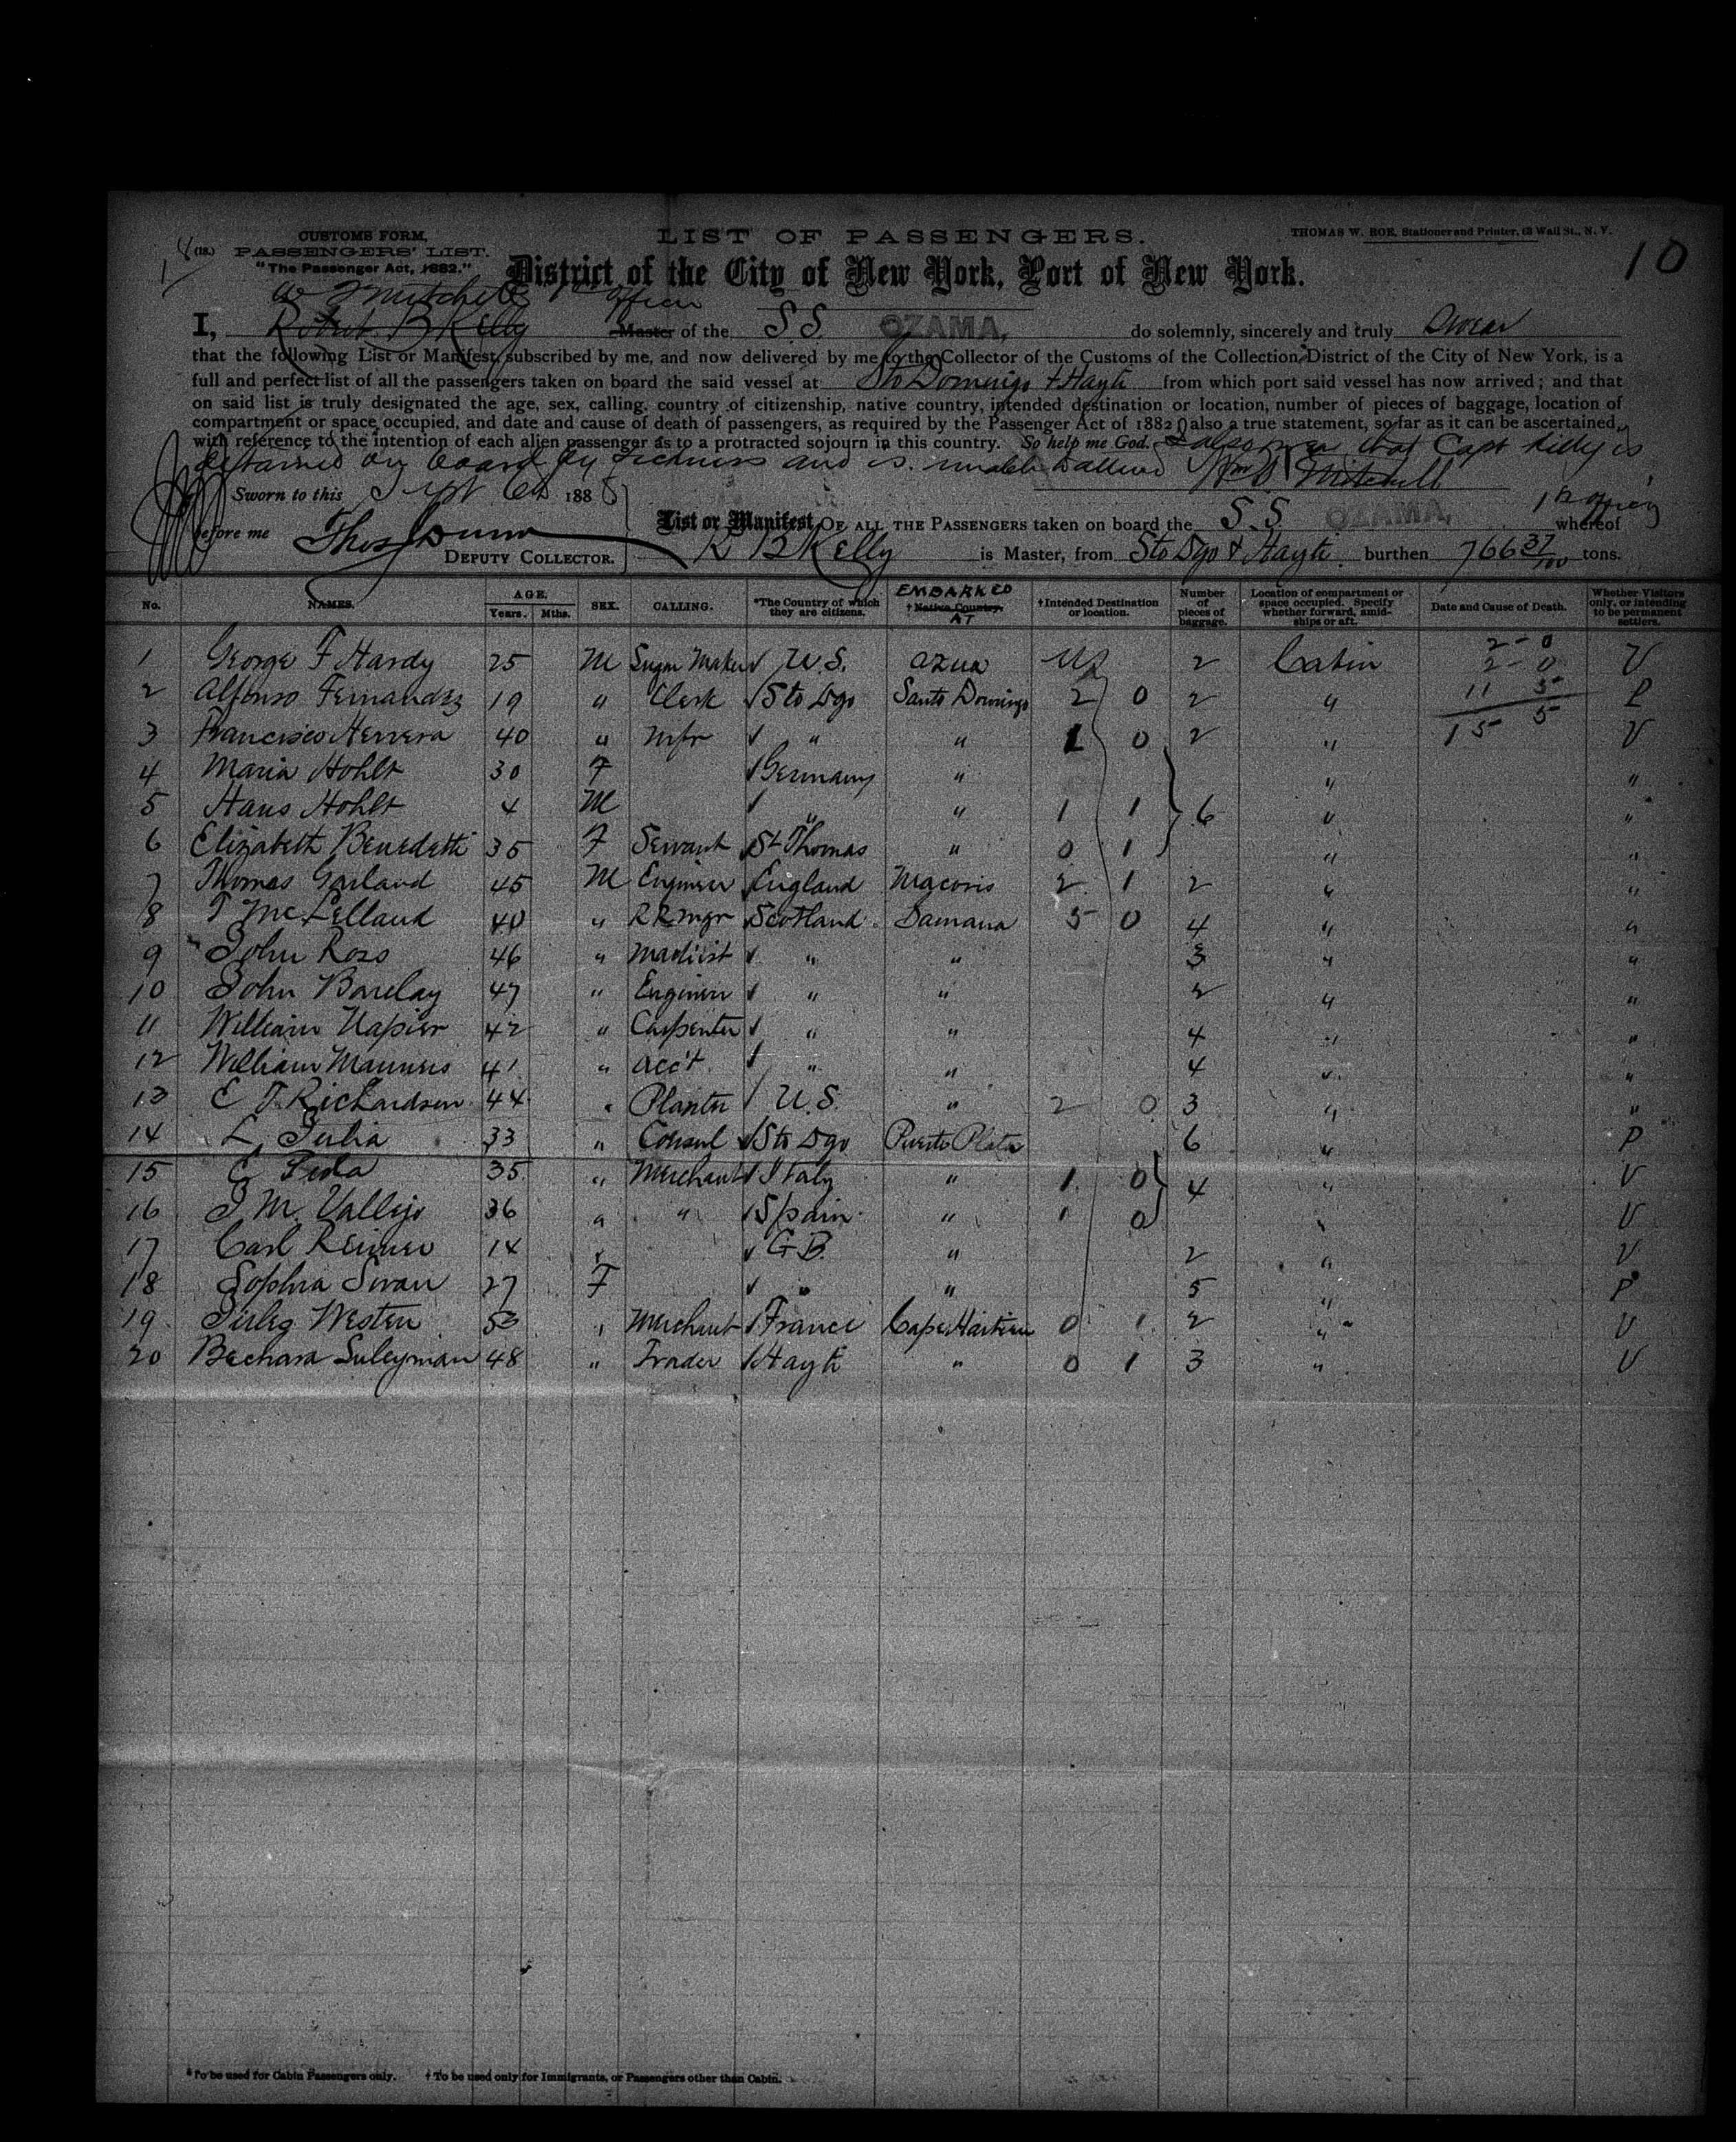 CUSTOMS FORM,
PASSENGERS' LIST.
"The Passenger Act, 1882."
LIST OF PASSENGERS.
THOMAS W. ROE, Stationer and Printer, 12 Wall St., N. Y.
10
District of the City of New York, Port of New York.
W J Mitchell 1st Officer
I, Robert B Kelly Master of the S.S. OZAMA, do solemnly, sincerely and truly Swear
that the following List or Manifest, subscribed by me, and now delivered by me to the Collector of the Customs of the Collection District of the City of New York, is a
full and perfect list of all the passengers taken on board the said vessel at Sto Domingo & Hayti from which port said vessel has now arrived; and that
on said list is truly designated the age, sex, calling, country of citizenship, native country, intended destination or location, number of pieces of baggage, location of
compartment or space occupied, and date and cause of death of passengers, as required by the Passenger Act of 1882; also a true statement, so far as it can be ascertained,
with reference to the intention of each alien passenger as to a protracted sojourn in this country. So help me God. I also swear that Capt Kelly is
detained on board by sickness and is unable to attend Wm J Mitchell
1st Officer
Sworn to this Sept 6th 1888
before me Thos Dunn
DEPUTY COLLECTOR.
List or Manifest OF ALL THE PASSENGERS taken on board the S.S. OZAMA, whereof
R B Kelly is Master, from Sto Dgo & Hayti burthen 766 37/100 tons.
No. NAMES. AGE. Years. Mths. SEX. CALLING. *The Country of which they are citizens. EMBARKED AT †Native Country. †Intended Destination or location. Number of pieces of baggage. Location of compartment or space occupied. Specify whether forward, amidships or aft. Date and Cause of Death. Whether Visitors only, or intending to be permanent settlers.
2-0
1 George F Hardy 25 M Sugar Maker U.S. Azua US 2 Cabin 2-0 V
2 Alfonso Fernandez 19 " Clerk Sto Dgo Santo Domingo 2 0 2 " 11 5 P
3 Francisco Herrera 40 " Mfr " " 1 0 2 " 15 5 V
4 Maria Hohlt 30 F Germany " " "
5 Hans Hohlt 4 M " " 1 1 6 " "
6 Elizabeth Benedetti 35 F Servant St Thomas " 0 1 " "
7 Thomas Garland 45 M Engineer England Macoris 2 1 2 " "
8 T McLelland 40 " RR Mgr Scotland Samana 5 0 4 " "
9 John Ross 46 " Machist " " 3 " "
10 John Barclay 47 " Engineer " " 2 " "
11 William Napier 42 " Carpenter " " 4 " "
12 William Manners 41 " Acc't " " 4 " "
13 E T Richardson 44 " Planter U.S. " 2 0 3 " "
14 L Julia 33 " Consul Sto Dgo Puerto Plata 6 " P
15 E 35 " Merchant Italy " 1 0 4 " V
16 J M Vallejo 36 " " Spain " 1 0 " V
17 Carl Reimer 14 " G B. " 2 " V
18 Sophia Swan 27 F " " 5 " P
19 Westen 53 " Merchant France Cape Haitien 0 1 2 " V
20 Bechara Suleyman 48 " Trader Hayti " 0 1 3 " V
*To be used for Cabin Passengers only. †To be used only for Immigrants, or Passengers other than Cabin.